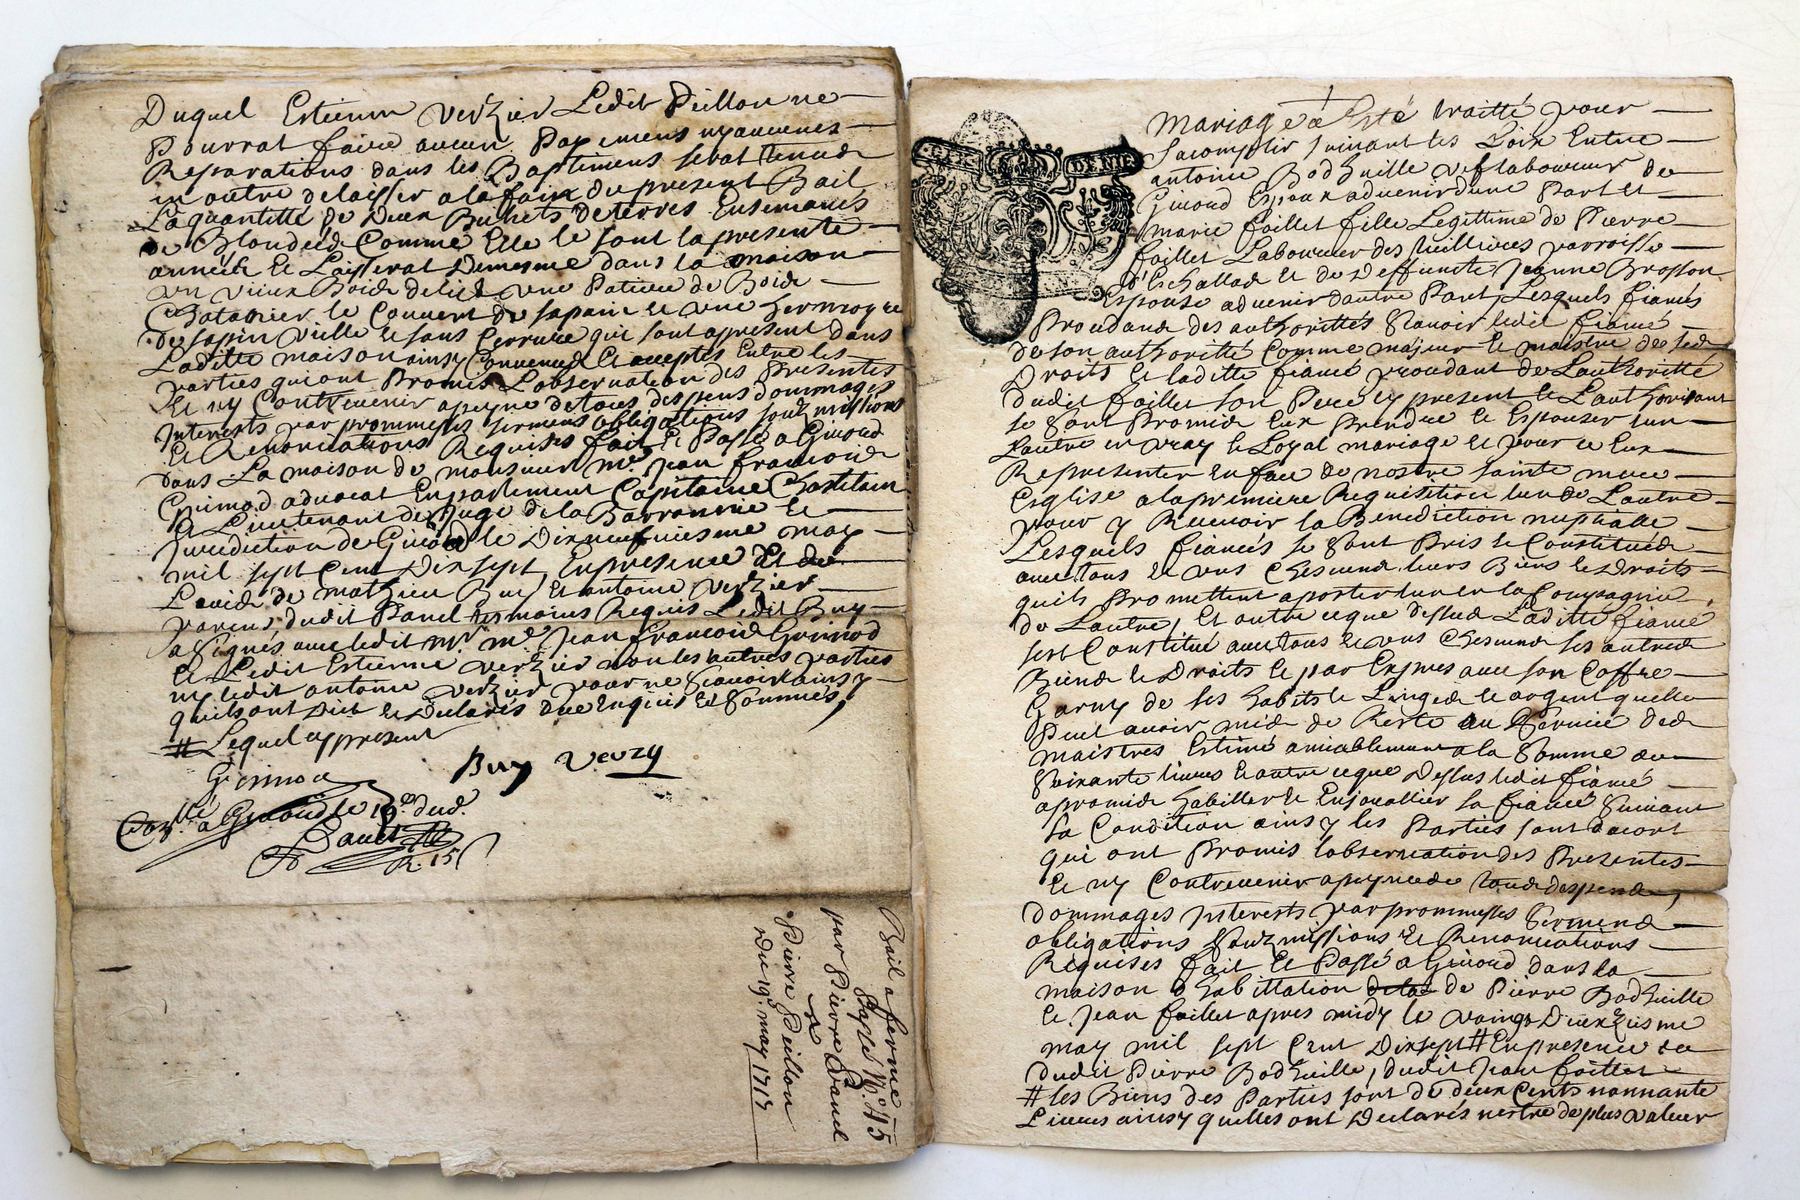 Duquel Estienne Verzier Ledit Peillon ne
Pourrat faire aucun Payemens ny aucunes
Reparations dans les Baptimens serat tenu de
in outre delaisser a la fain du present Bail
La quantitté de Deux Bichets de terres Ensemancés
de Blondeed Comme Elle le sont la presente
année Et Laisserat Demesme dans la maison
un vieux Bois de lict une Patiere de Bois
Chatanier le Couvert de sapin et une
de sapin vielle et sans serrure qui sont apresent dans
Laditte maison ainsy Convenus Et acceptés Entre les
parties qui ont Promis L'observation des Presentes
Et ny Contrevenir a peyne de tous despens dommages
Interests par prommesses sermens obligations soubzmissions
Et Renonciations Requises fait Et Passé a Givord
dans La maison de monsieur Mre Jean francois
Grimod advocat En parlement Capitaine Chastelain
Et Lieutenant de Juge de la Barronnie Et
Jurisdiction de Givord le Dixneufviesme may
mil sept Cent Dixsept, En presence Et de
L'avis de mathieu Buy Et antoine Verzier
parens dudit Panel tesmoins Requis Ledit Buy
a Signés avec ledit Mr. Me Jean francois Grimod
Et Ledit Estienne Verzier non les autres parties
ny ledit antoine Verzier pour ne scavoir ainsy
quils ont Dict Et Declarés Enquis Et Sommés,
# Lequel a present
Grimod
Buy Verzy
Conllé a Givord le dud.
Panel
R. 15 s
Bail a ferme
Passé
par Pierre Panel
a
Pierre Peillon
Du 19e may 1717
Mariage a Esté traitté pour
Sacomplir suivant les Loix Entre
antoine Bodhuille vef laboureur de
Givord Espoux advenir dune Part et
marie faillet fille Legittime de Pierre
faillet Laboureur des parroisse
d'Eschallad et de Deffuncte Jeanne Brosson
Espouse advenir dautre Part, Lesquels fiancés
Procedans des authorittés scavoir ledit fiancé
de son authoritté Comme majeur et maistre de ses
Droits et laditte fiancé procedant de Lauthoritté
dudit faillet son Pere cy present et Lauthorisant
se sont Promis Eux Prendre et Espouser lun
Lautre en vray et Loyal mariage et pour ce Eux
Representer En face de nostre sainte mere
Esglise a la premiere Requisition lun de Lautre
pour y Recevoir la Benediction nuptialle
Lesquels fiancés se sont Pris et Constitués
avec tous et uns Chescuns leurs Biens et Droits
quils Promettent aporter lun En la Compagnie
de Lautre, Et outre ceque dessus Laditte fiancé
sest Constitué avec tous et uns Chescuns ses autres
Biens et Droits et par Expres avec son Coffre
Garny de ses habits et Linges et argent quelle
Peut avoir mis de Reste au Service des
maistres Estimé amiablement a la somme de
soixante livres et outre ceque Dessus ledit fiancé
a promis habiller et Enjouallier sa fiancé suivant
sa Condition ainsy les Parties sont dacort
qui ont Promis lobservation des Presentes
Et ny Contrevenir a peyne de tous despens,
dommages Interests par prommesses Sermens
obligations soubzmissions et Renonciations
Requises fait Et Passé a Givord dans la
maison dhabittation de Pierre Bodhuille
et Jean faillet apres midy le vaingt Deuxziesme
may mil sept Cent Dixsept # En presence de
dudit Pierre Bodhuille, dudit Jean faillet
# les Biens des Parties sont de deux Cents nonnante
Livres ainsy quelles ont Declarés nestre de plus valeur